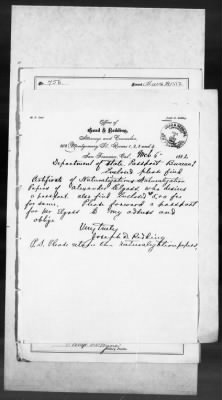 No. 456
Issued March 20 1882
Office of
Attorneys and Counselors
Montgomery St. Rooms 1, 2, 3 and 4
San Francisco, Cal. Mch 6 1882
Department of State, Passport Bureau,
Enclosed please find
Certificate of Naturalization, Naturalization
Papers of Alexander who desires
a passport also find Enclosed $5.00 fee
for same. Please forward a passport
for Mr to my address and
oblige
Very truly
Joseph D. Redding
P.S. Please return the naturalization papers